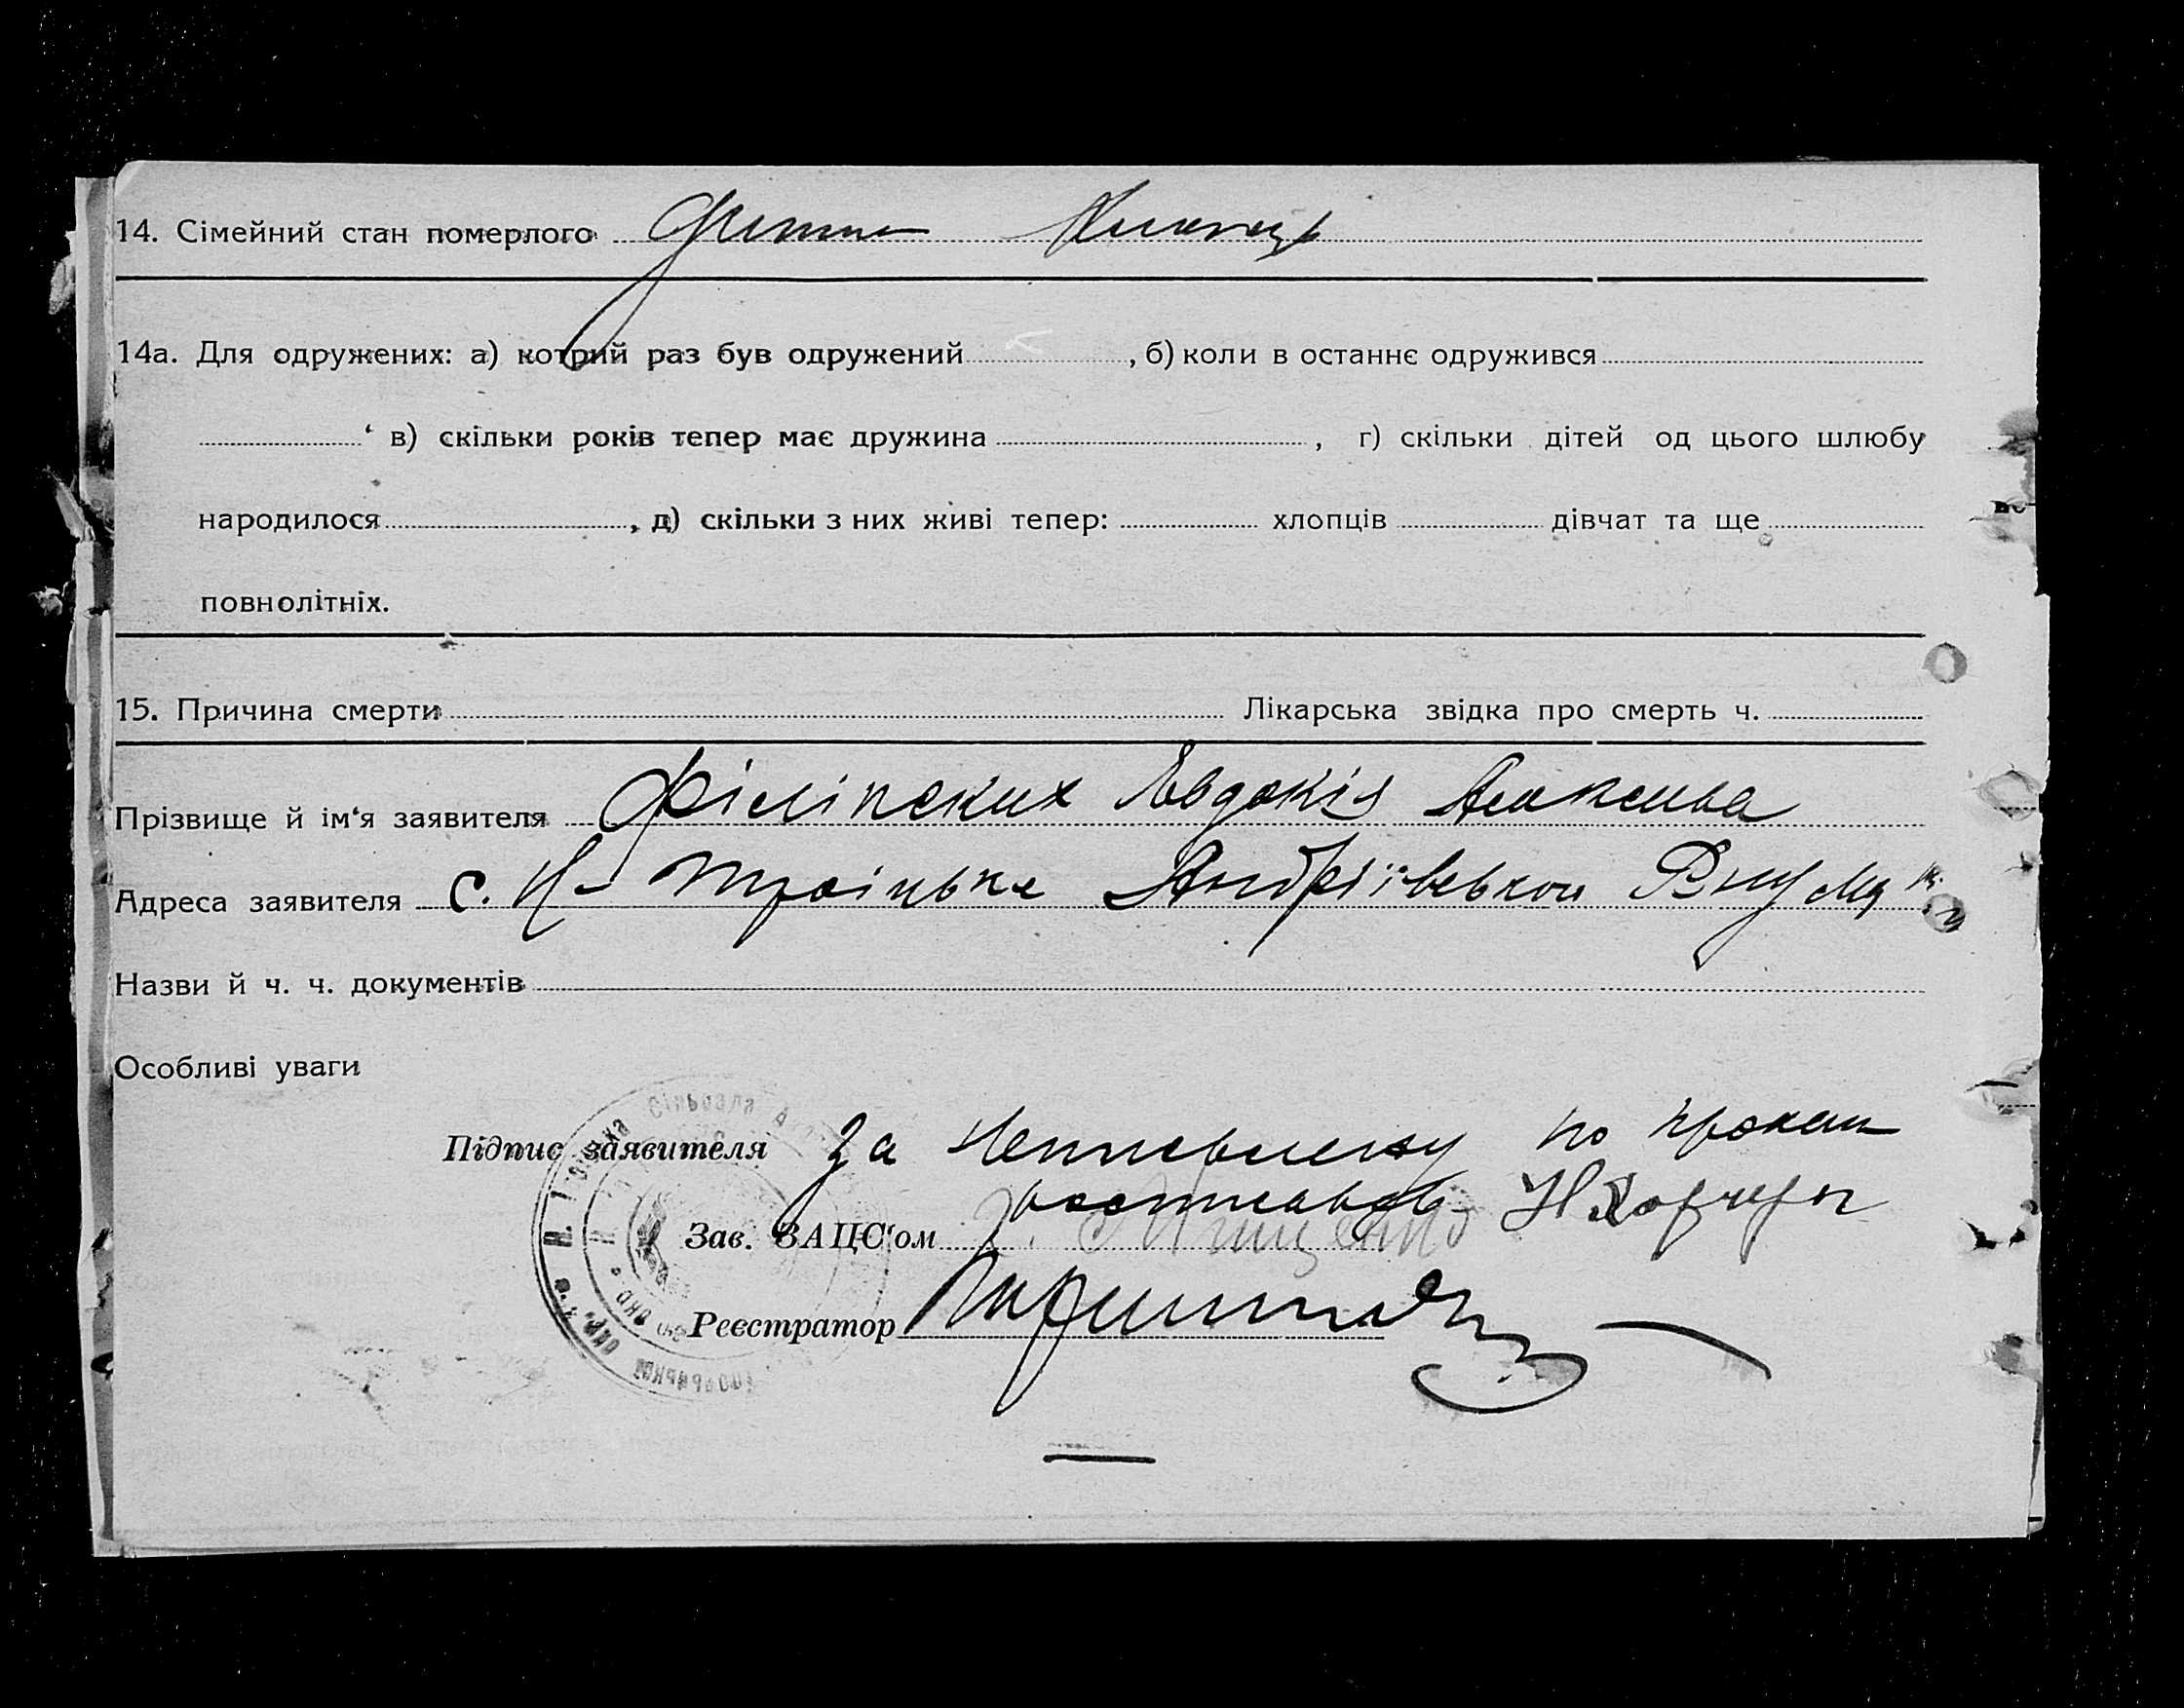 14. Сімейний стан померлого
14а. Для одружених: а) котрий раз був одружений , б) коли в останнє одружився
‘ в) скільки років тепер має дружина , г) скільки дітей од цього шлюбу
народилося , д) скільки з них живі тепер: хлопців дівчат та ще
повнолітніх.
15. Причина смерти Лікарська звідка про смерть ч.
Прізвище й ім‘я заявителя Філіпских Євдокія
Адреса заявителя с. Н- Троіцьке Андріївської
Назви й ч. ч. документів
Особливі уваги
Підпис заявителя За по
Зав. ЗАЦС‘ом
Реєстратор